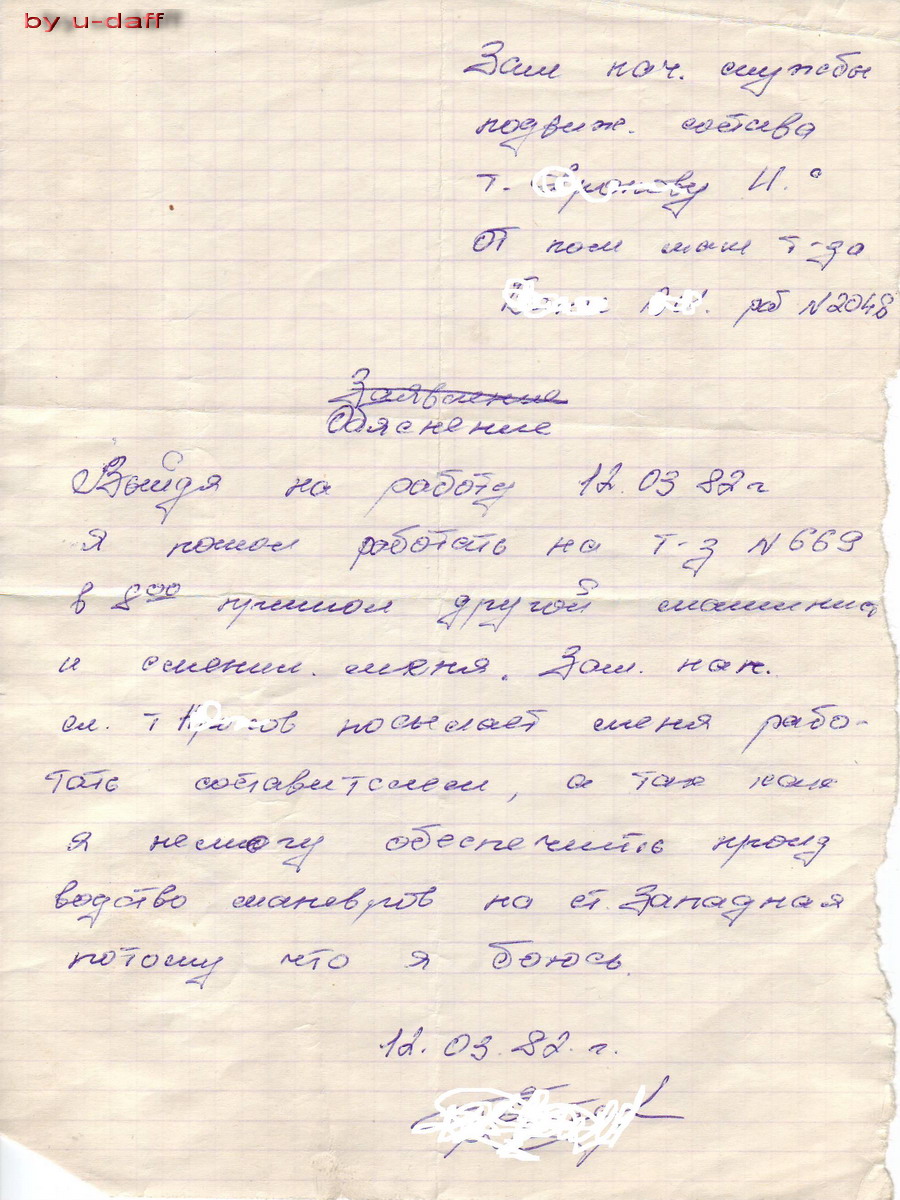 by u-daff
Зам нач. службы
подвиж. состава
т. И.
От пом маш т-за
раб N2048
Заявление
Обяснение
Выйдя на работу 12.03 82 г
я пошол работать на т-з N 669
в 8 00 пришол другой машинист
и сменил меня. Зам. нач.
сл. т посылает меня рабо-
тать составителем, а так как
я немогу обеспечить произ
водство маневров на ст. Западная
потому что я боюсь.
12. 03. 82. г.